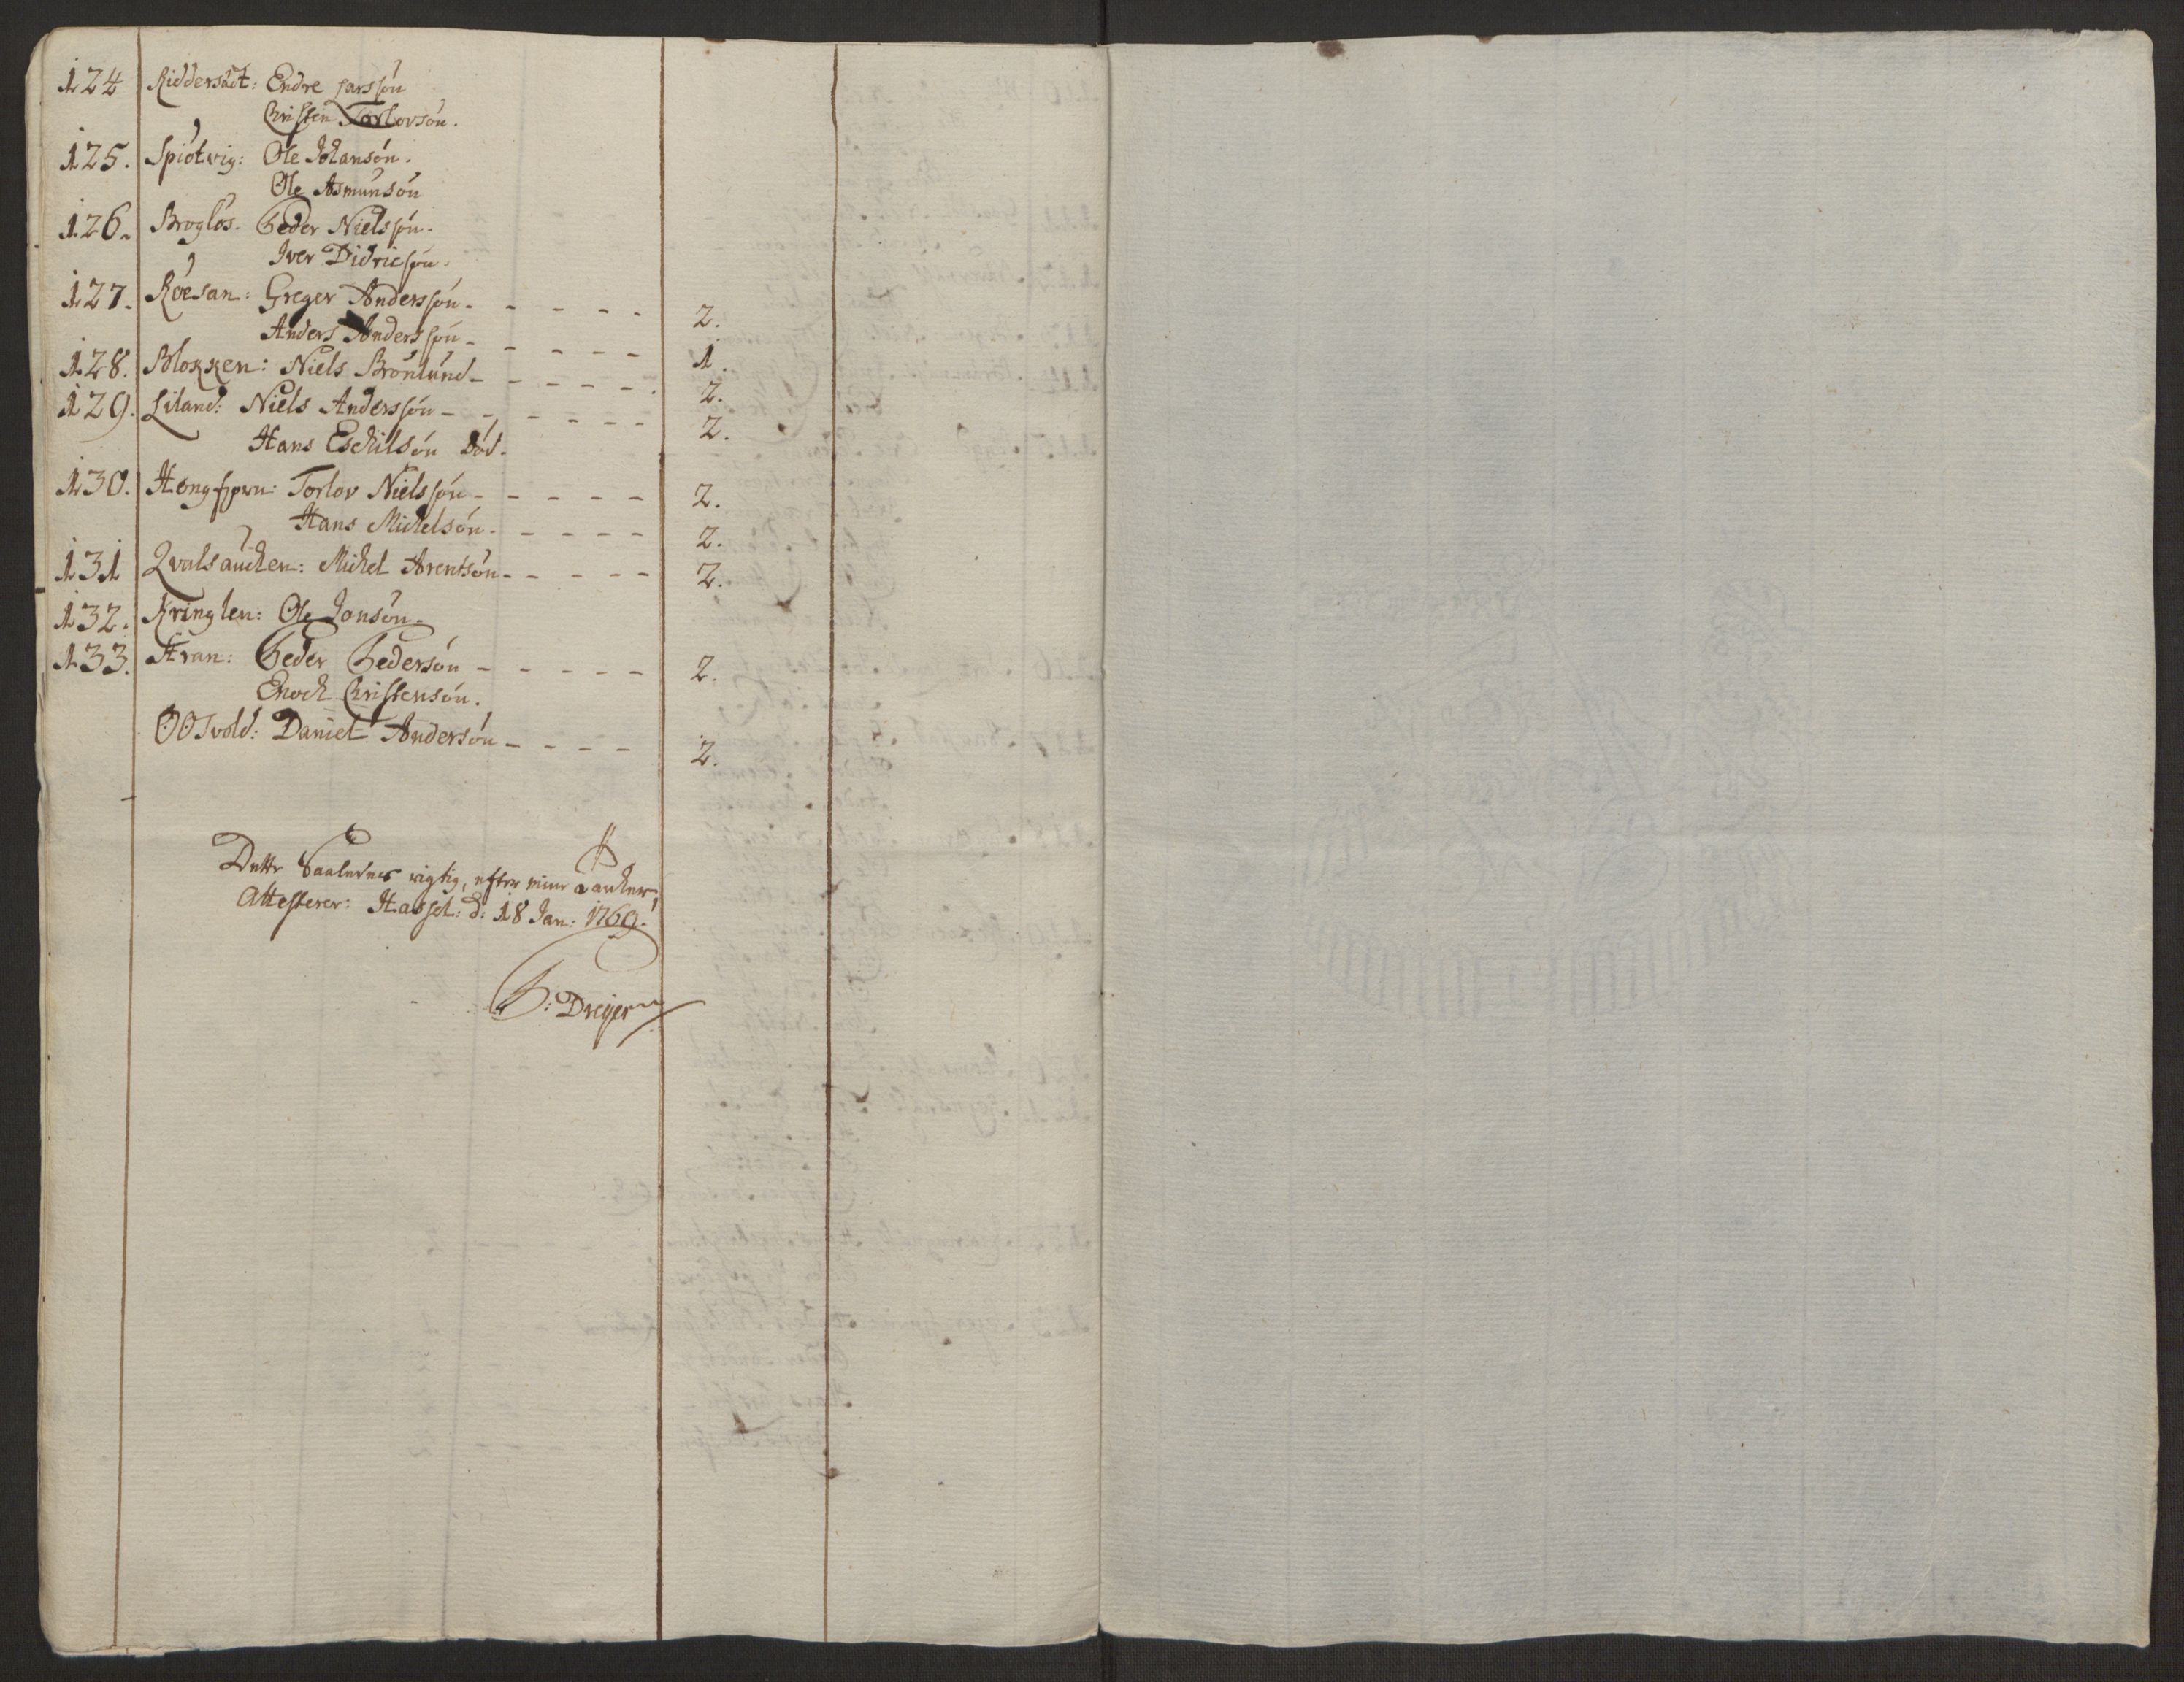 124 Riddersæt: Endre Larssøn
Christen Torlovsøn.
125. Spiøtvig: Ole Johansøn.
Ole Asmunsøn
126. Broglos. Peder Nielssøn.
Iver Didricsøn.
127. Röesan: Greger Anderssøn - - - - - 2.
Anders Anderssøn - - - - - 1.
128. Blokken: Niels Brönlund - - - - - 2.
129. Liland: Niels Anderssøn - - - - - 2.
Hans Eschilsøn död.
130. Torlov Nielssøn - - - - - 2.
Hans Michelsøn - - - - - 2.
131 Qvalsauchen: Michel Arentsøn - - - - - 2.
132. Kringlen: Ole Jonsøn.
133. Peder Pedersøn - - - - - 2.
Enoch Christensøn.
Daniel Andersøn - - - - 2.
Dette Saaledes rigtig, efter mine Tancker,
Attesterer: Hassel: d: 18 Jan: 1769.
P: Dreyer